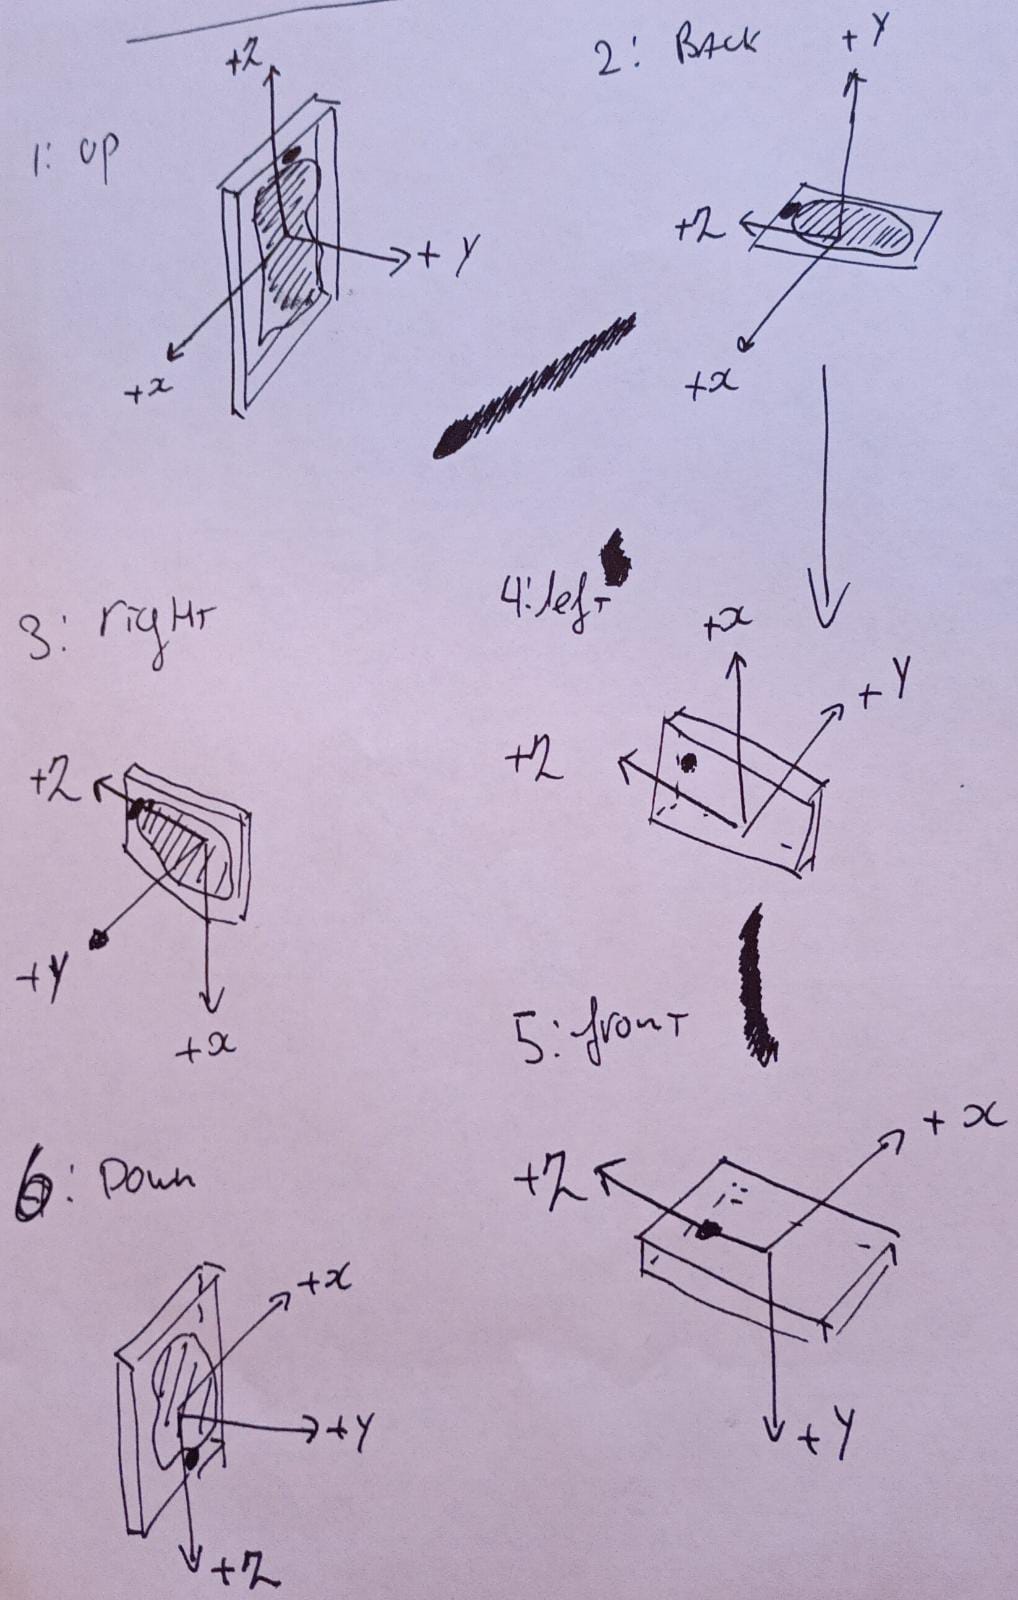 1: up
+Z
+Y
+x
2: BACK
+Y
+Z
+x
3: rigHT
+Z
+Y
+x
4: lefT
+x
+Y
+Z
5: fronT
+x
+Z
+Y
6: Down
+x
+Y
+Z